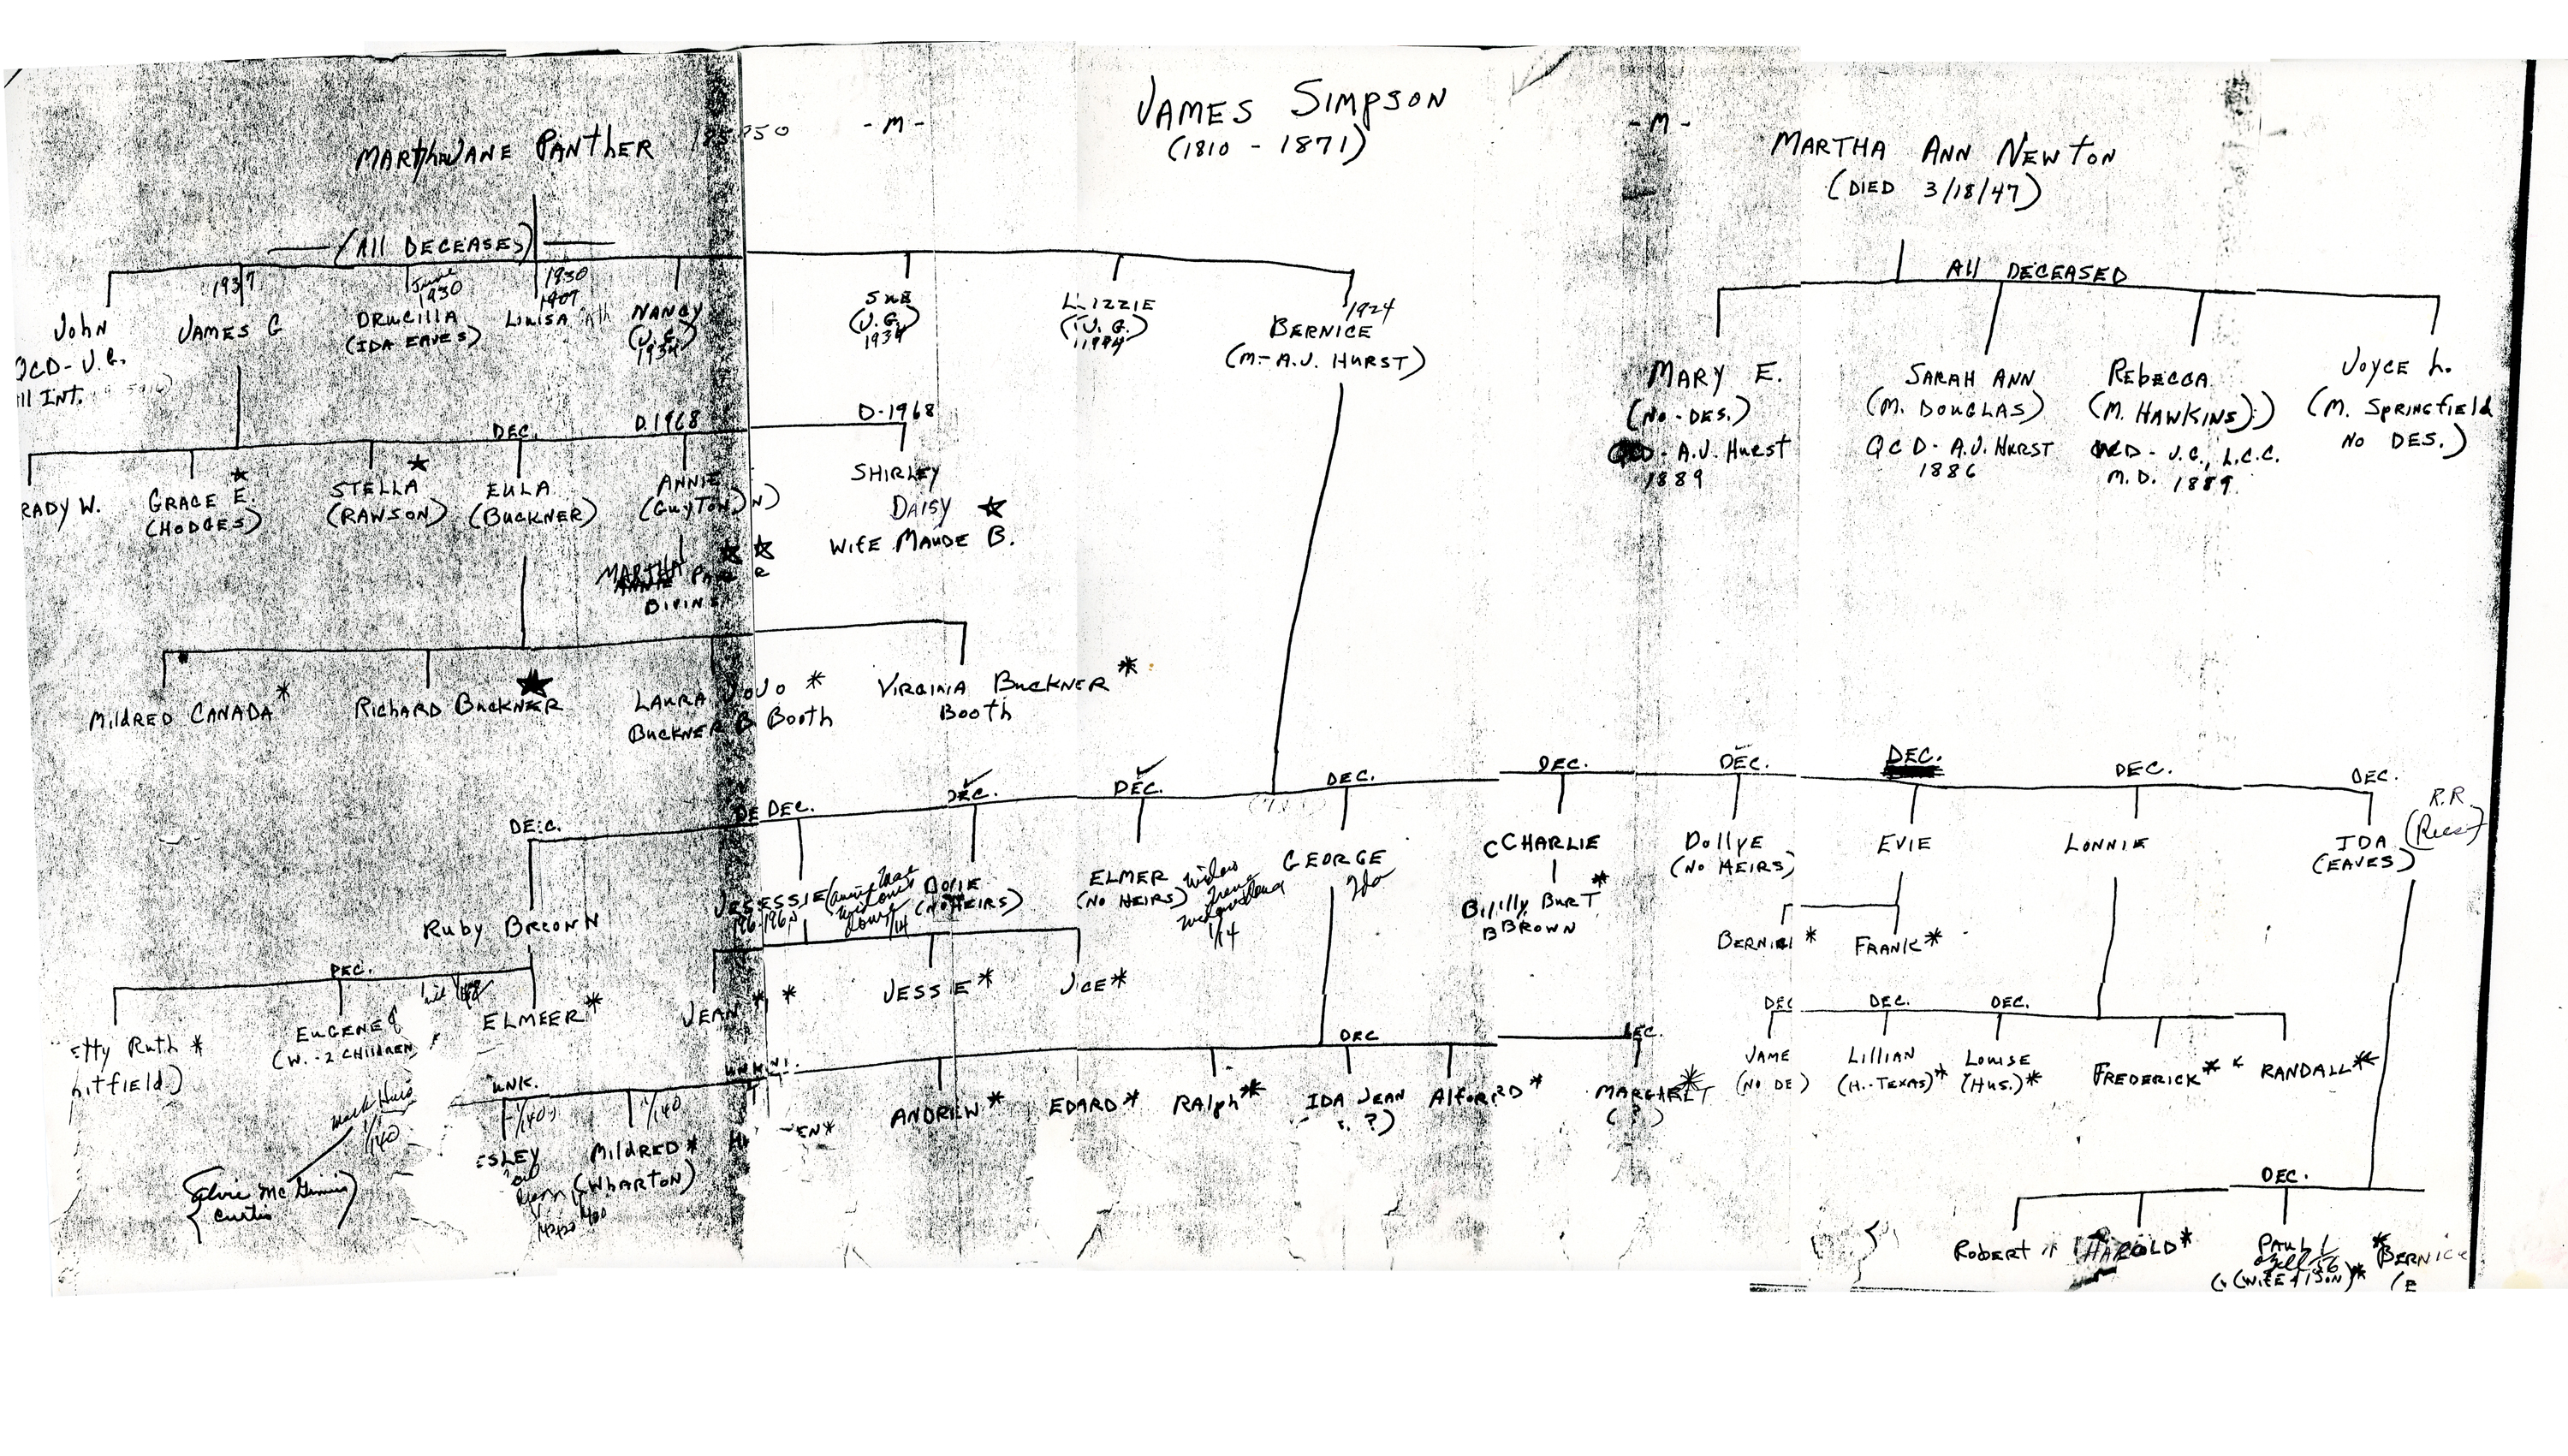 JAMES SIMPSON
(1810 - 1871)
- M -
- M -
MARTHA JANE PANTHER
MARTHA ANN NEWTON
(DIED 3/18/47)
(All DECEASES)
All DECEASED
1937
June
1930
1930
1907
1924
John
JAMES G
DRUCILLA
(IDA EAVES)
LOUISA
NANCY
(J.G.)
1934
SUE
(J.G.)
1934
LIZZIE
(J.G.)
BERNICE
(M-A.J. HURST)
QCD - J.G.
All INT.
MARY E.
(NO-DES.)
QCD - A.J. Hurst
1889
SARAH ANN
(M. DOUGLAS)
QCD - A.J. HURST
1886
REBECCA
(M. HAWKINS)
QCD - J.G., L.C.C.
M.D. 1889
JOYCE L.
(M. SPRINGfiELD
NO DES.)
DEC.
D.1968
D-1968
RADY W.
GRACE E.
(HODGES)
STELLA
(RAWSON)
EULA
(BUCKNER)
ANNIE
(GuyTON)
SHIRLEY
DAISY
WifE MAUDE B.
MARTHA
DIVINS
MildRED CANADA*
RichARD BuckNER
LAURA JOJO *
BuckNER Booth
VIRGINIA BuckNER*
Booth
DEC.
DEC.
DEC.
DEC.
DEC.
DEC.
DEC.
DEC.
DEC.
DEC.
Ruby BROWN
JESSIE
DOVIE
(NO HEIRS)
ELMER
(NO HEIRS)
Widow
1/14
GEORGE
Ida
CHARLIE
Dollye
(NO HEIRS)
EVIE
LONNIE
IDA
(EAVES)
R.R.
Billy BURT*
BROWN
BERNICE *
FRANK*
DEC.
etty Ruth *
hitfield)
EUGENE
(W. - 2 CHILDREN)
ELMER*
JEAN *
JESSIE*
JOE*
DEC
DEC.
DEC
DEC.
DEC.
JAME
(NO DE)
LILLIAN
(H.-TEXAS)*
LOUISE
(HUS.)*
FREDERICK*
RANDALL*
UNK.
1/140
1/140
ESLEY
MildRED*
(WhARTON)
EN*
ANDREW*
EDARD*
RAlph*
IDA JEAN
?)
AlfoRD*
MARGARET
(?)
1/140
Elvie McGinnis)
Curtis
DEC.
RobERT
HAROLD*
PAUL
(WIFE + 1 SON)*
*BERNICE
(E